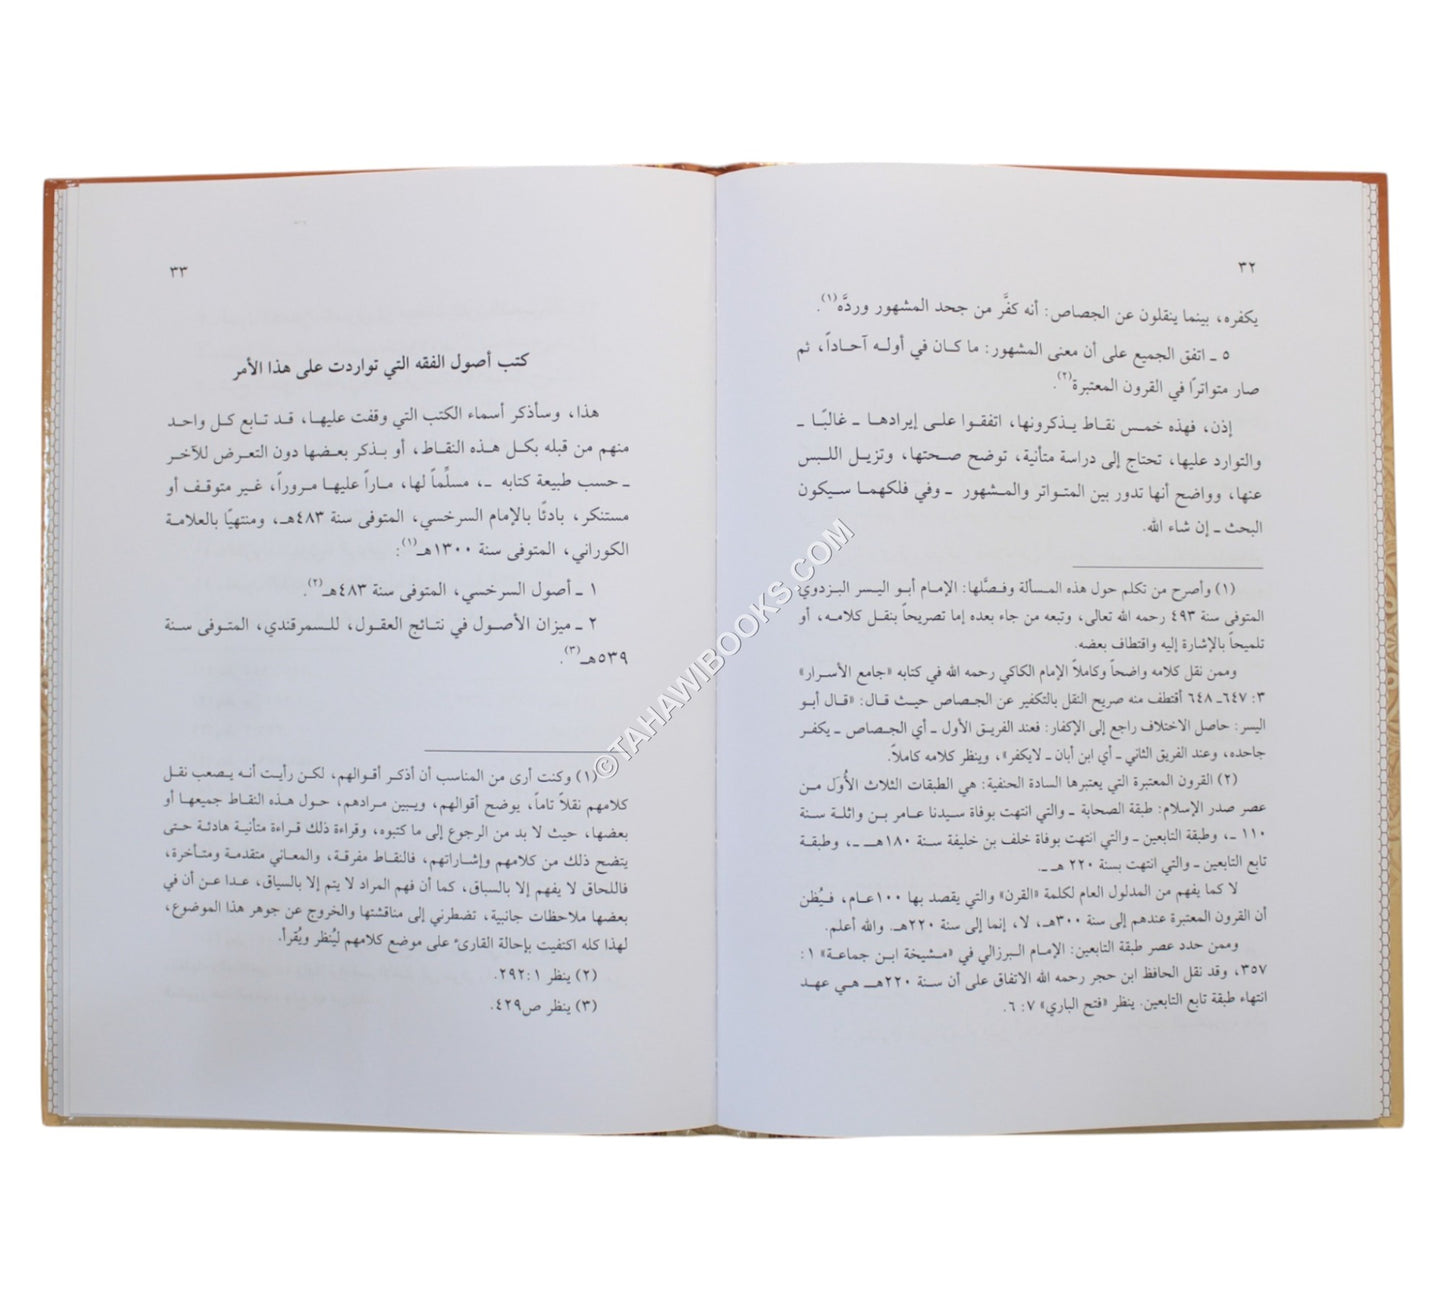 ٣٢
يكفره، بينما ينقلون عن الجصاص: أنه كفَّر من جحد المشهور وردَّه(١).
٥ ـ اتفق الجميع على أن معنى المشهور: ما كان في أوله آحاداً، ثم
صار متواترًا في القرون المعتبرة(٢).
إذن، فهذه خمس نقاط يذكرونها، اتفقوا على إيرادها ـ غالبًا ـ
والتوارد عليها، تحتاج إلى دراسة متأنية، توضح صحتها، وتزيل اللبس
عنها، وواضح أنها تدور بين المتواتر والمشهور ـ وفي فلكهما سيكون
البحث ـ إن شاء الله.
(١) وأصرح من تكلم حول هذه المسألة وفصَّلها: الإمام أبو اليسر البزدوي
المتوفى سنة ٤٩٣ رحمه الله تعالى، وتبعه من جاء بعده إما تصريحاً بنقل كلامه، أو
تلميحاً بالإشارة إليه واقتطاف بعضه.
وممن نقل كلامه واضحاً وكاملاً الإمام الكاكي رحمه الله في كتابه «جامع الأسرار»
٣: ٦٤٧ـ ٦٤٨ أقتطف منه صريح النقل بالتكفير عن الجصاص حيث قال: «قال أبو
اليسر: حاصل الاختلاف راجع إلى الإكفار: فعند الفريق الأول ـ أي الجصاص ـ يكفر
جاحده، وعند الفريق الثاني ـ أي ابن أبان ـ لايكفر»، وينظر كلامه كاملاً.
(٢) القرون المعتبرة التي يعتبرها السادة الحنفية: هي الطبقات الثلاث الأُوَل من
عصر صدر الإسلام: طبقة الصحابة ـ والتي انتهت بوفاة سيدنا عامر بن واثلة سنة
١١٠ ـ، وطبقة التابعين ـ والتي انتهت بوفاة خلف بن خليفة سنة ١٨٠هـ ـ، وطبقة
تابع التابعين ـ والتي انتهت بسنة ٢٢٠ هـ ـ.
لا كما يفهم من المدلول العام لكلمة «القرن» والتي يقصد بها ١٠٠عام، فيُظن
أن القرون المعتبرة عندهم إلى سنة ٣٠٠هـ، لا، إنما إلى سنة ٢٢٠هـ. والله أعلم.
وممن حدد عصر طبقة التابعين: الإمام البرزالي في «مشيخة ابن جماعة» ١:
٣٥٧، وقد نقل الحافظ ابن حجر رحمه الله الاتفاق على أن سنة ٢٢٠هـ هي عهد
انتهاء طبقة تابع التابعين. ينظر «فتح الباري» ٧: ٦.
٣٣
كتب أصول الفقه التي تواردت على هذا الأمر
هذا، وسأذكر أسماء الكتب التي وقفت عليها، قد تابع كل واحد
منهم من قبله بكل هذه النقاط، أو بذكر بعضها دون التعرض للآخر
ـ حسب طبيعة كتابه ـ، مسلِّماً لها، ماراً عليها مروراً، غير متوقف أو
مستنكر، بادئًا بالإمام السرخسي، المتوفى سنة ٤٨٣هـ، ومنتهيًا بالعلامة
الكوراني، المتوفى سنة ١٣٠٠هـ(١):
١ ـ أصول السرخسي، المتوفى سنة ٤٨٣هـ(٢).
٢ ـ ميزان الأصول في نتائج العقول، للسمرقندي، المتوفى سنة
٥٣٩هـ(٣).
(١) وكنت أرى من المناسب أن أذكر أقوالهم، لكن رأيت أنه يصعب نقل
كلامهم نقلاً تاماً، يوضح أقوالهم، ويبين مرادهم، حول هذه النقاط جميعها أو
بعضها، حيث لا بد من الرجوع إلى ما كتبوه، وقراءة ذلك قراءة متأنية هادئة حتى
يتضح ذلك من كلامهم وإشاراتهم، فالنقاط مفرقة، والمعاني متقدمة ومتأخرة،
فاللحاق لا يفهم إلا بالسباق، كما أن فهم المراد لا يتم إلا بالسياق، عدا عن أن في
بعضها ملاحظات جانبية، تضطرني إلى مناقشتها والخروج عن جوهر هذا الموضوع،
لهذا كله اكتفيت بإحالة القارئ على موضع كلامهم ليُنظر ويُقرأ.
(٢) ينظر ١: ٢٩٢.
(٣) ينظر ص٤٢٩.
©TAHAWIBOOKS.COM